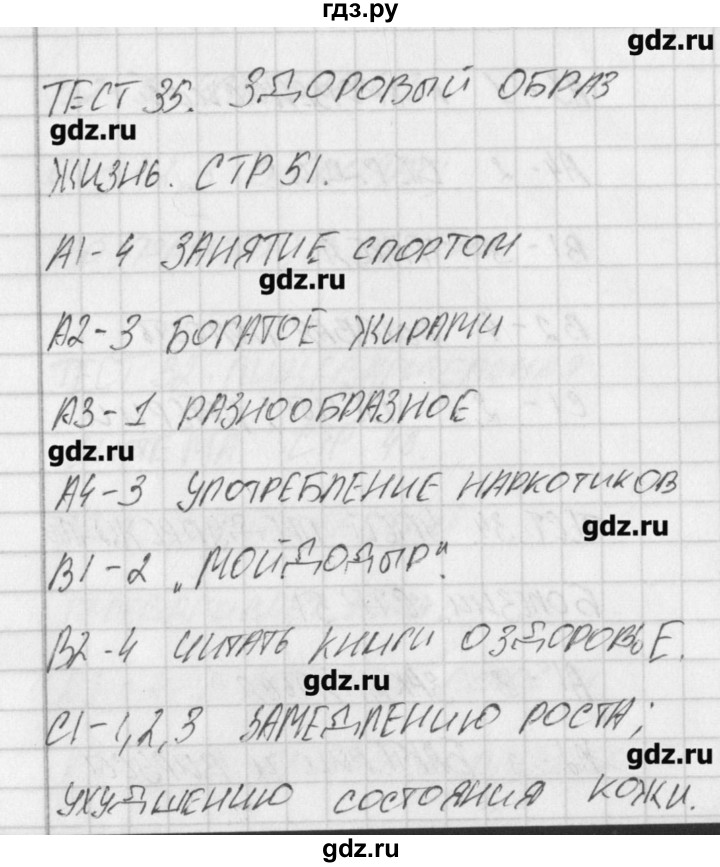 гдз.ру
gdz.ru
ТЕСТ 35. ЗДОРОВЫЙ ОБРАЗ
gdz.ru
ЖИЗНЬ. СТР 51.
А1-4 ЗАНЯТИЕ СПОРТОМ
gdz.ru
А2-3 БОГАТОЕ ЖИРАМИ
А3-1 РАЗНООБРАЗНОЕ
gdz.ru
А4-3 УПОТРЕБЛЕНИЕ НАРКОТИКОВ
gdz.ru
В1-2 „МОЙДОДЫР".
В2-4 ЧИТАТЬ КНИГИ О ЗДОРОВЬЕ.
gdz.ru
С1-1,2,3 ЗАМЕДЛЕНИЮ РОСТА;
gdz.ru
УХУДШЕНИЮ СОСТОЯНИЯ КОЖИ.
gdz.ru